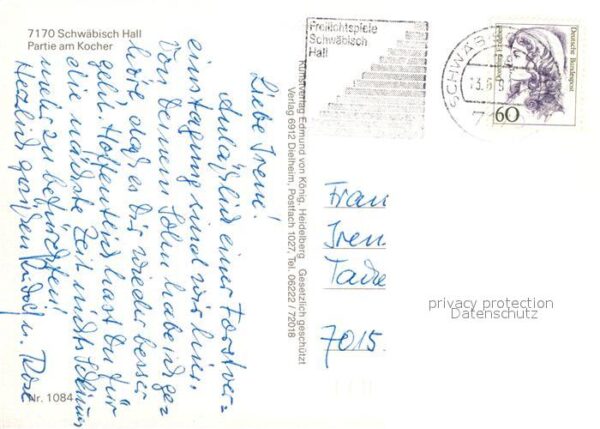 7170 Schwäbisch Hall
Partie am Kocher
Liebe Irene!
Anläßlich einer Forstver=
einstagung sind wir hier.
Von deinem Sohn habe ich ge=
hört, daß es Dir wieder besser
geht. Hoffentlich hast Du für
die nächste Zeit nichts Schlimm
mehr zu befürchten!
Herzlich grüßen Rudolf u. Rose
Nr. 1084
Kunstverlag Edmund von König, Heidelberg Gesetzlich geschützt
Verlag 6912 Dielheim, Postfach 1027, Tel. 06222 / 72018
Freilichtspiele
Schwäbisch
Hall
SCHWÄB
13.6.9
71
Deutsche Bundespost
60
Frau
Iren
7015
privacy protection
Datenschutz